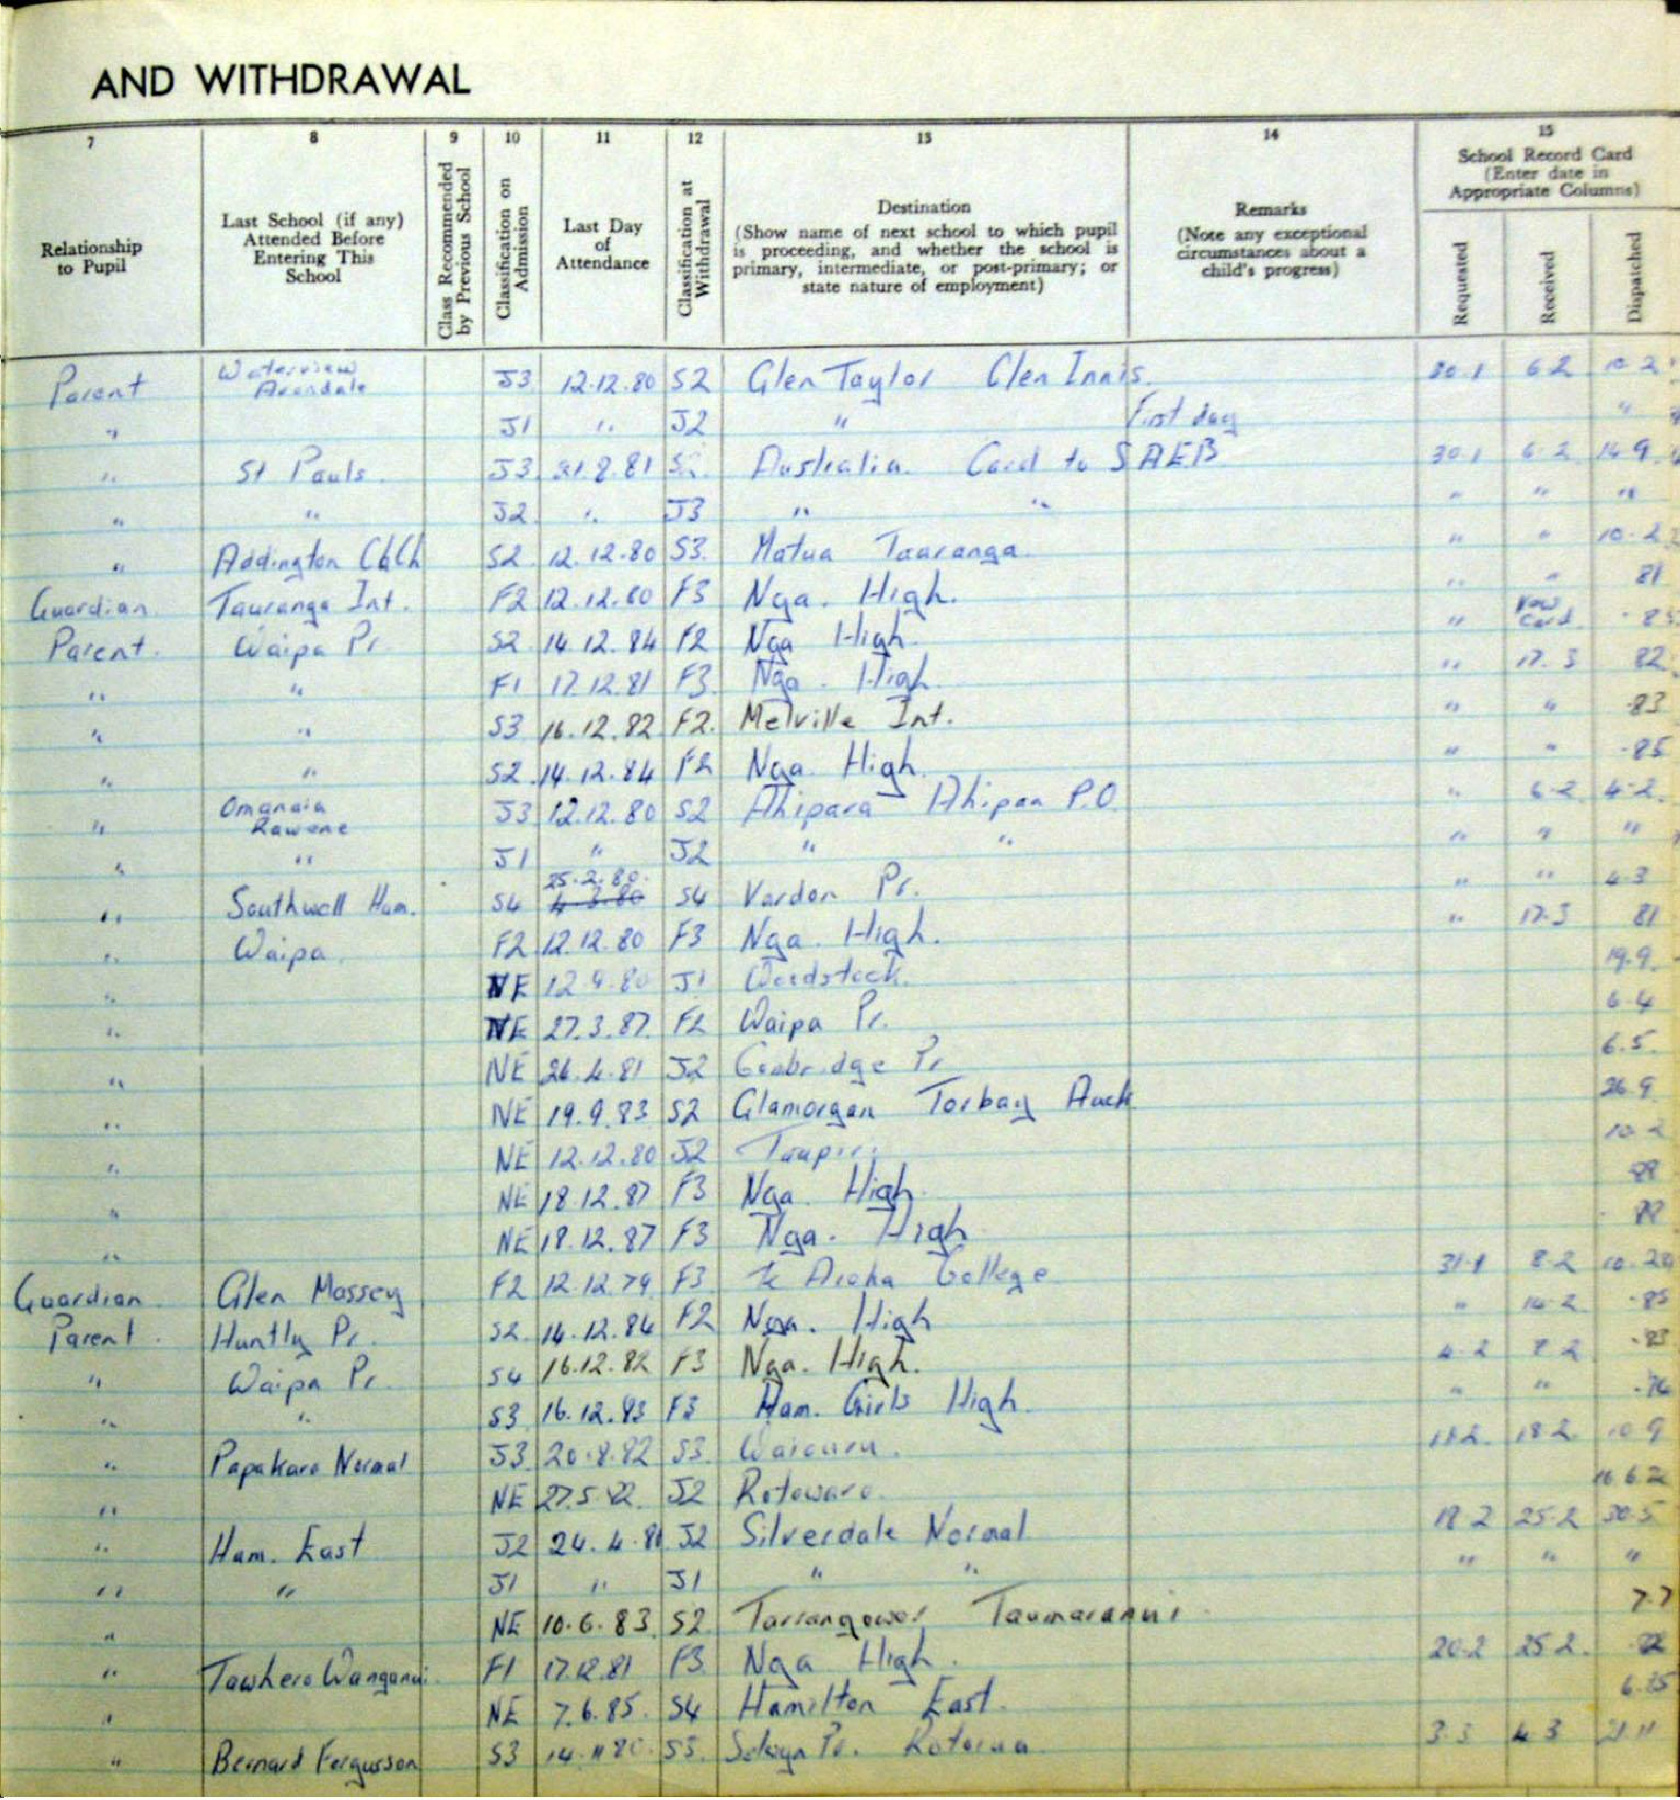 AND WITHDRAWAL
7 8 9 10 11 12 13 14 15
Relationship to Pupil
Last School (if any) Attended Before Entering This School
Class Recommended by Previous School
Classification on Admission
Last Day of Attendance
Classification at Withdrawal
Destination
(Show name of next school to which pupil is proceeding, and whether the school is primary, intermediate, or post-primary; or state nature of employment)
Remarks
(Note any exceptional circumstances about a child's progress)
School Record Card
(Enter date in Appropriate Columns)
Requested Received Dispatched
Parent Waterview Avondale J3 12.12.80 S2 Glen Taylor Glen Innis. 30.1 6.2 10.2
" J1 " J2 " First day "
" St Pauls. J3 21.8.81 Australia. Card to SAEB 30.1 6.2 14.9
" " J2 " J3 " " " " "
" Addington ChCh S2 12.12.80 S3. Matua Tauranga " " 10.2
Guardian Tauranga Int. F2 12.12.80 F3 Nga. High. " " 81
Parent. Waipa Pr. S2 14.12.84 F2 Nga High. " New Card 85
" " F1 17.12.81 F3 Nga. High. " 17.3 82
" " S3 16.12.82 F2. Melville Int. " " 83
" " S2 14.12.84 F2 Nga. High. " " 85
" Omanaia Rawene J3 12.12.80 S2 Ahipara Ahipara P.O. " 6.2 4.2
" " J1 " J2 " " " " "
" Southwell Ham. S4 25.2.80. 4.3.80 S4 Vardon Pr. " " 4.3
" Waipa F2 12.12.80 F3 Nga. High. " 17.3 81
" NE 12.9.80 J1 Woodstock. 19.9.
" NE 27.3.87. F2 Waipa Pr. 6.4
" NE 26.4.81 J2 Cambridge Pr 6.5.
" NE 19.9.83 S2 Glamorgan Torbay Auck 26.9
" NE 12.12.80 J2 Taupiri 10.2
" NE 18.12.87 F3 Nga. High. 88
" NE 18.12.87 F3 Nga. High 88
Guardian Glen Massey F2 12.12.79 F3 Te Aroha College 31.1 8.2
Parent. Huntly Pr. S2 14.12.84 F2 Nga. High " 14.2 .85
" Waipa Pr. S4 16.12.82 F3 Nga. High. 4.2 8.2 .83
" " S3 16.12.83 F3 Ham. Girls High. " "
" Papakura Normal J3 20.8.82 S3. Waiouru. 18.2 18.2 10.9
" NE 27.5.82. J2 Rotowaro.
" Ham. East J2 24.4.81 J2 Silverdale Normal 18.2 25.2 30.5
" " J1 " J1 " " " " "
" NE 10.6.83. S2 Tarrangower Taumaranui 7.7
" Tawhero Wanganui. F1 17.12.81 F3 Nga High. 20.2 25.2 82
" NE 7.6.85. S4 Hamilton East. 6.85
" Bernard Fergusson S3 14.11.80. S3. Selwyn Pr. Rotorua 3.3 4.3 21.11